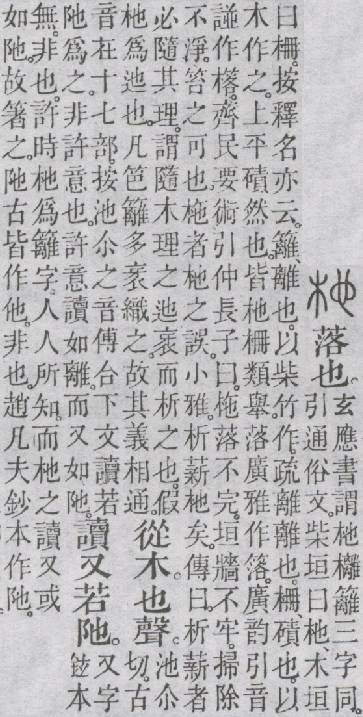 杝 落也。玄應書謂杝欏籬三字同。
引通俗文。柴垣曰杝、木垣
曰栅。按釋名亦云。籬、離也。以柴竹作。疏離離也。栅、磧也。以
木作之。上平磧然也。皆杝栅類舉。落廣雅作落。廣韵引音
譜作㯙。齊民要術引仲長子曰。柂落不完。垣牆不牢。掃除
不淨。笞之可也。柂者杝之誤。小雅。析薪杝矣。傳曰。析薪者
必隨其理。謂隨木理之迆衺而析之也。假
杝爲迆也。凡笆籬多衺織之。故其義相通。
從木也聲。池尒
切。古
音在十七部。按池尒之音傅合下文讀若
阤爲之。非許意也。許意讀如離。而又如阤。
讀又若阤。又字
鉉本
無。非也。許時杝爲籬字。人人所知。而杝之讀又或
如阤。故箸之。阤古皆作他。非也。趙凡夫鈔本作阤。